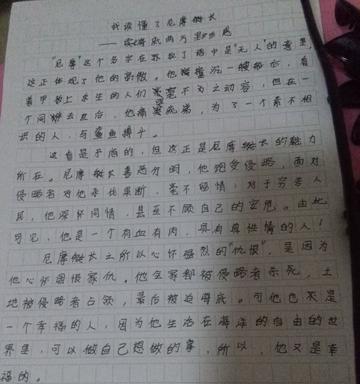 我读懂了尼摩船长
——读《海底两万里》有感
"尼摩"这个名字在拉丁语中是"无人"的意思,
这正体现了他的高傲。他撞沉一艘船后,看
着甲板上求生的人们毫不为之动容,但在一
个同伴去世后,他痛哭流涕,为了一个素不相
识的人,与鲨鱼搏斗。
这自是矛盾的,但这正是尼摩船长的魅力
所在。尼摩船长善恶分明,他饱受侵略,面对
侵略者对他来说果断,毫不留情,对于穷苦人
民,他深怀同情,甚至不顾自己的安危。由此
可见,他是一个有血有肉,具有真性情的人!
尼摩船长之所以心怀强烈的"仇恨",是因为
他心怀国恨家仇。他全家都被侵略者杀死,土
地被侵略者占领,最后被迫海底。可他也不是
一个幸福的人,因为他生活在海洋的自由的世
界里,可以做自己想做的事,所以,他又是幸
福的。